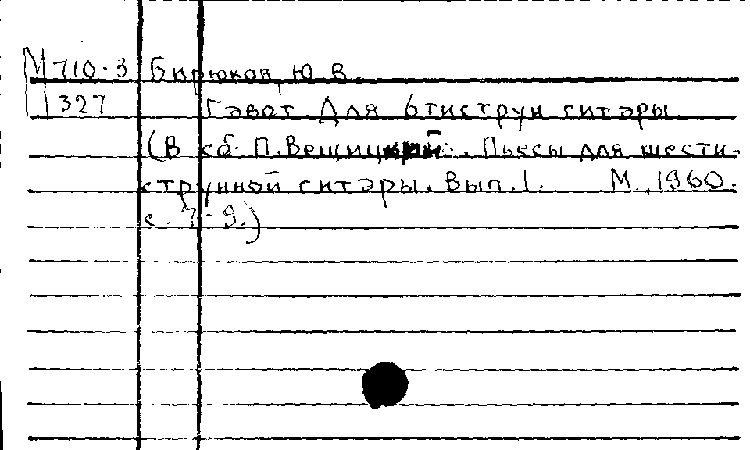 М710-3 Бирюков, Ю. В.
1327 Гавот Для 6тиструн гитары
(В сб П. Вещицкий. Пьесы для шести-
струнной гитары. Вып. 1. М., 1960.
с. 7-9.)